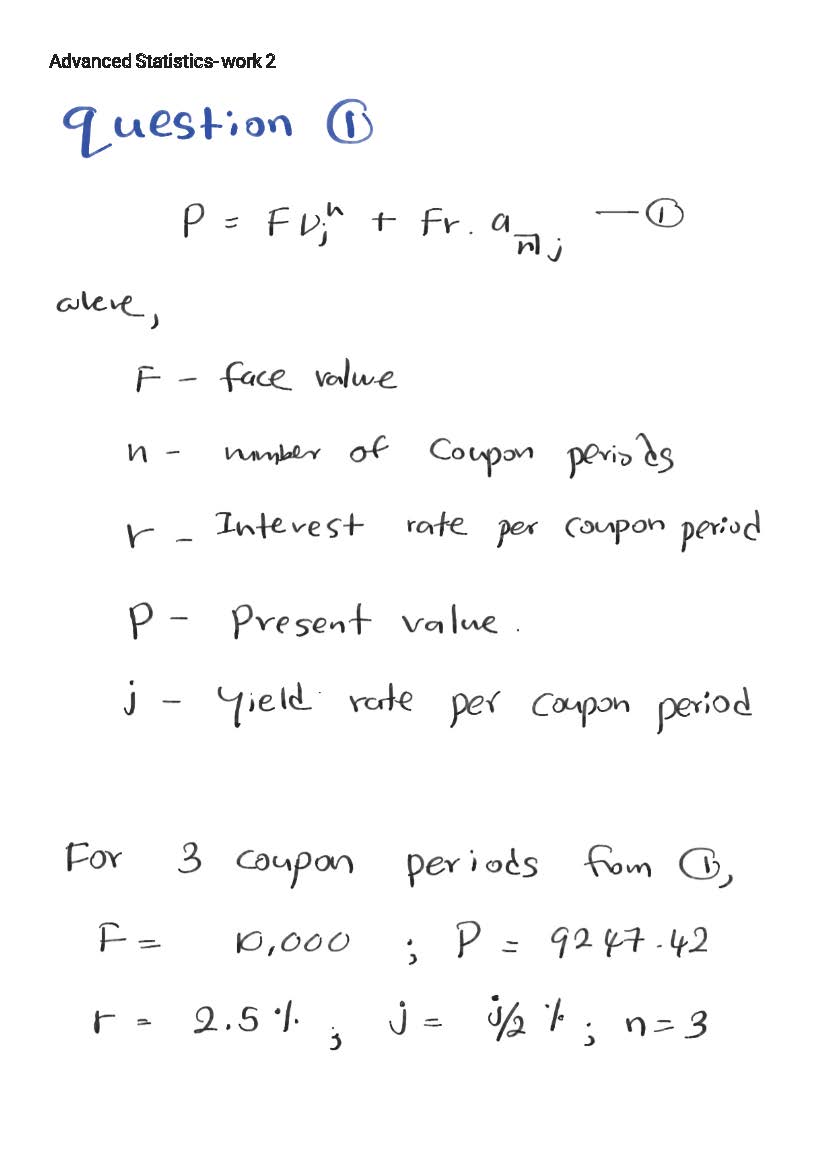 Advanced Statistics-work 2
question ①
P = Fνⱼⁿ + Fr. a n̅| j —①
where,
F - face value
n - number of Coupon periods
r - Interest rate per coupon period
P - Present value.
j - Yield rate per coupon period
For 3 coupon periods from ①,
F = 10,000 ; P = 9247.42
r = 2.5% ; j = j/2 % ; n = 3